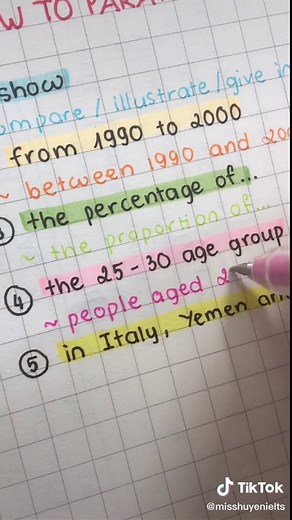 W TO PARA
show
ompare / illustrate / give in
from 1990 to 2000
~ between 1990 and 200
the percentage of...
~ the proportion of...
4 the 25-30 age group
~ people aged 2
5 in Italy, Yemen an
TikTok
@misshuyenielts